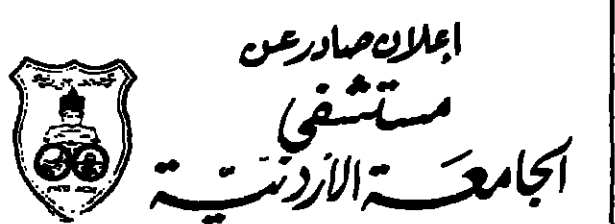 إعلان صادر عن
مستشفى
الجامعة الأردنية